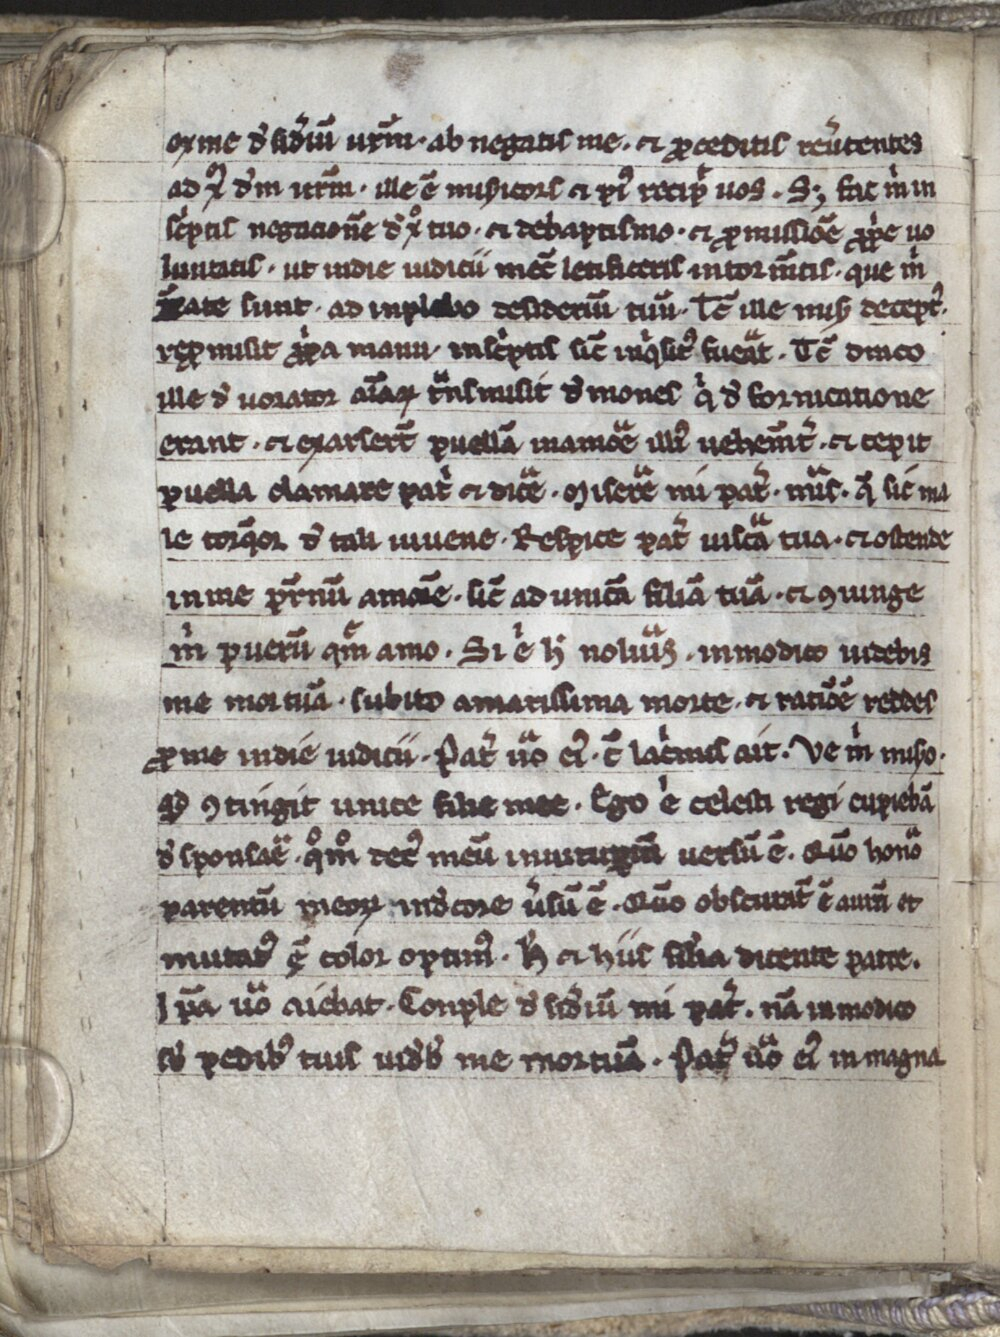 ex me d̕sid̕iū ur̄m · ab negatis me · et ꝓceditis reu̕tentes
ad x̄ dn̄m ur̄m · ille ē mis̕icors et p̄i recip̕ uos · Sꝫ fac m̕ in
sc̕ptis negacionē d̕ x̄ tuo · et de baptismo · et ꝓmissiōe ꝓp̕e uo
luntatis · ut in die iudicii mec̄ letificeris in tor m̄tis · que m̕
sunt · ad desideriū tuū · Tc̄ ille mis̕ decept̕ ·
manu · insc̕ptis sic̄ inq̕sit̕ fuāt · Tc̄ draco
ille d̕ uorator aīaꝝ tn̄smisit d̕ mones q̕ d̕ fornicatione
erant · et exarserūt puellā in amōe illi̕ uehem̄t̕ · et cepit
puella clamare pat̕ et dic̄e · Miserē mi pat̕ · mis̄ · q̄ sic ma
le torq̄or d̕ tali iuuene · Respice pat̕ uiscā tua · et ostende
in me pr̄nū amoē · sic̄ ad unicā filiā tuā · et ꝯiunge
m̕ puerū quē amo · Si ē h̄ noluīs · in modico uidebis
me mortuā · subito amarissima morte · et ratiōē reddes
ꝓ me in die iudicii · Pat̕ uō ei̕ · c̄ lac̕mis ait · Ve m̕ mis̕o ·
qd̄ ꝯtingit unice filie mee · Ego ē celesti regi cupiebā
d̕ sponsāe · qūo dec̕ meū uersū ē · Quō honō
parentū meoꝝ in d̕core u̕sū ē · Quō obscurat̄ ē aurū et
mutat̕ ē color optim̕ · H̄ et hiis silia dicente patre ·
Ip̄a uō aiebat · Conple d̕sid̕iū mi pat̕ · nā in modico
sb̕ pedib̕ tuis uid̕b̕ me mortuā · Pat̕ uō ei̕ in magna